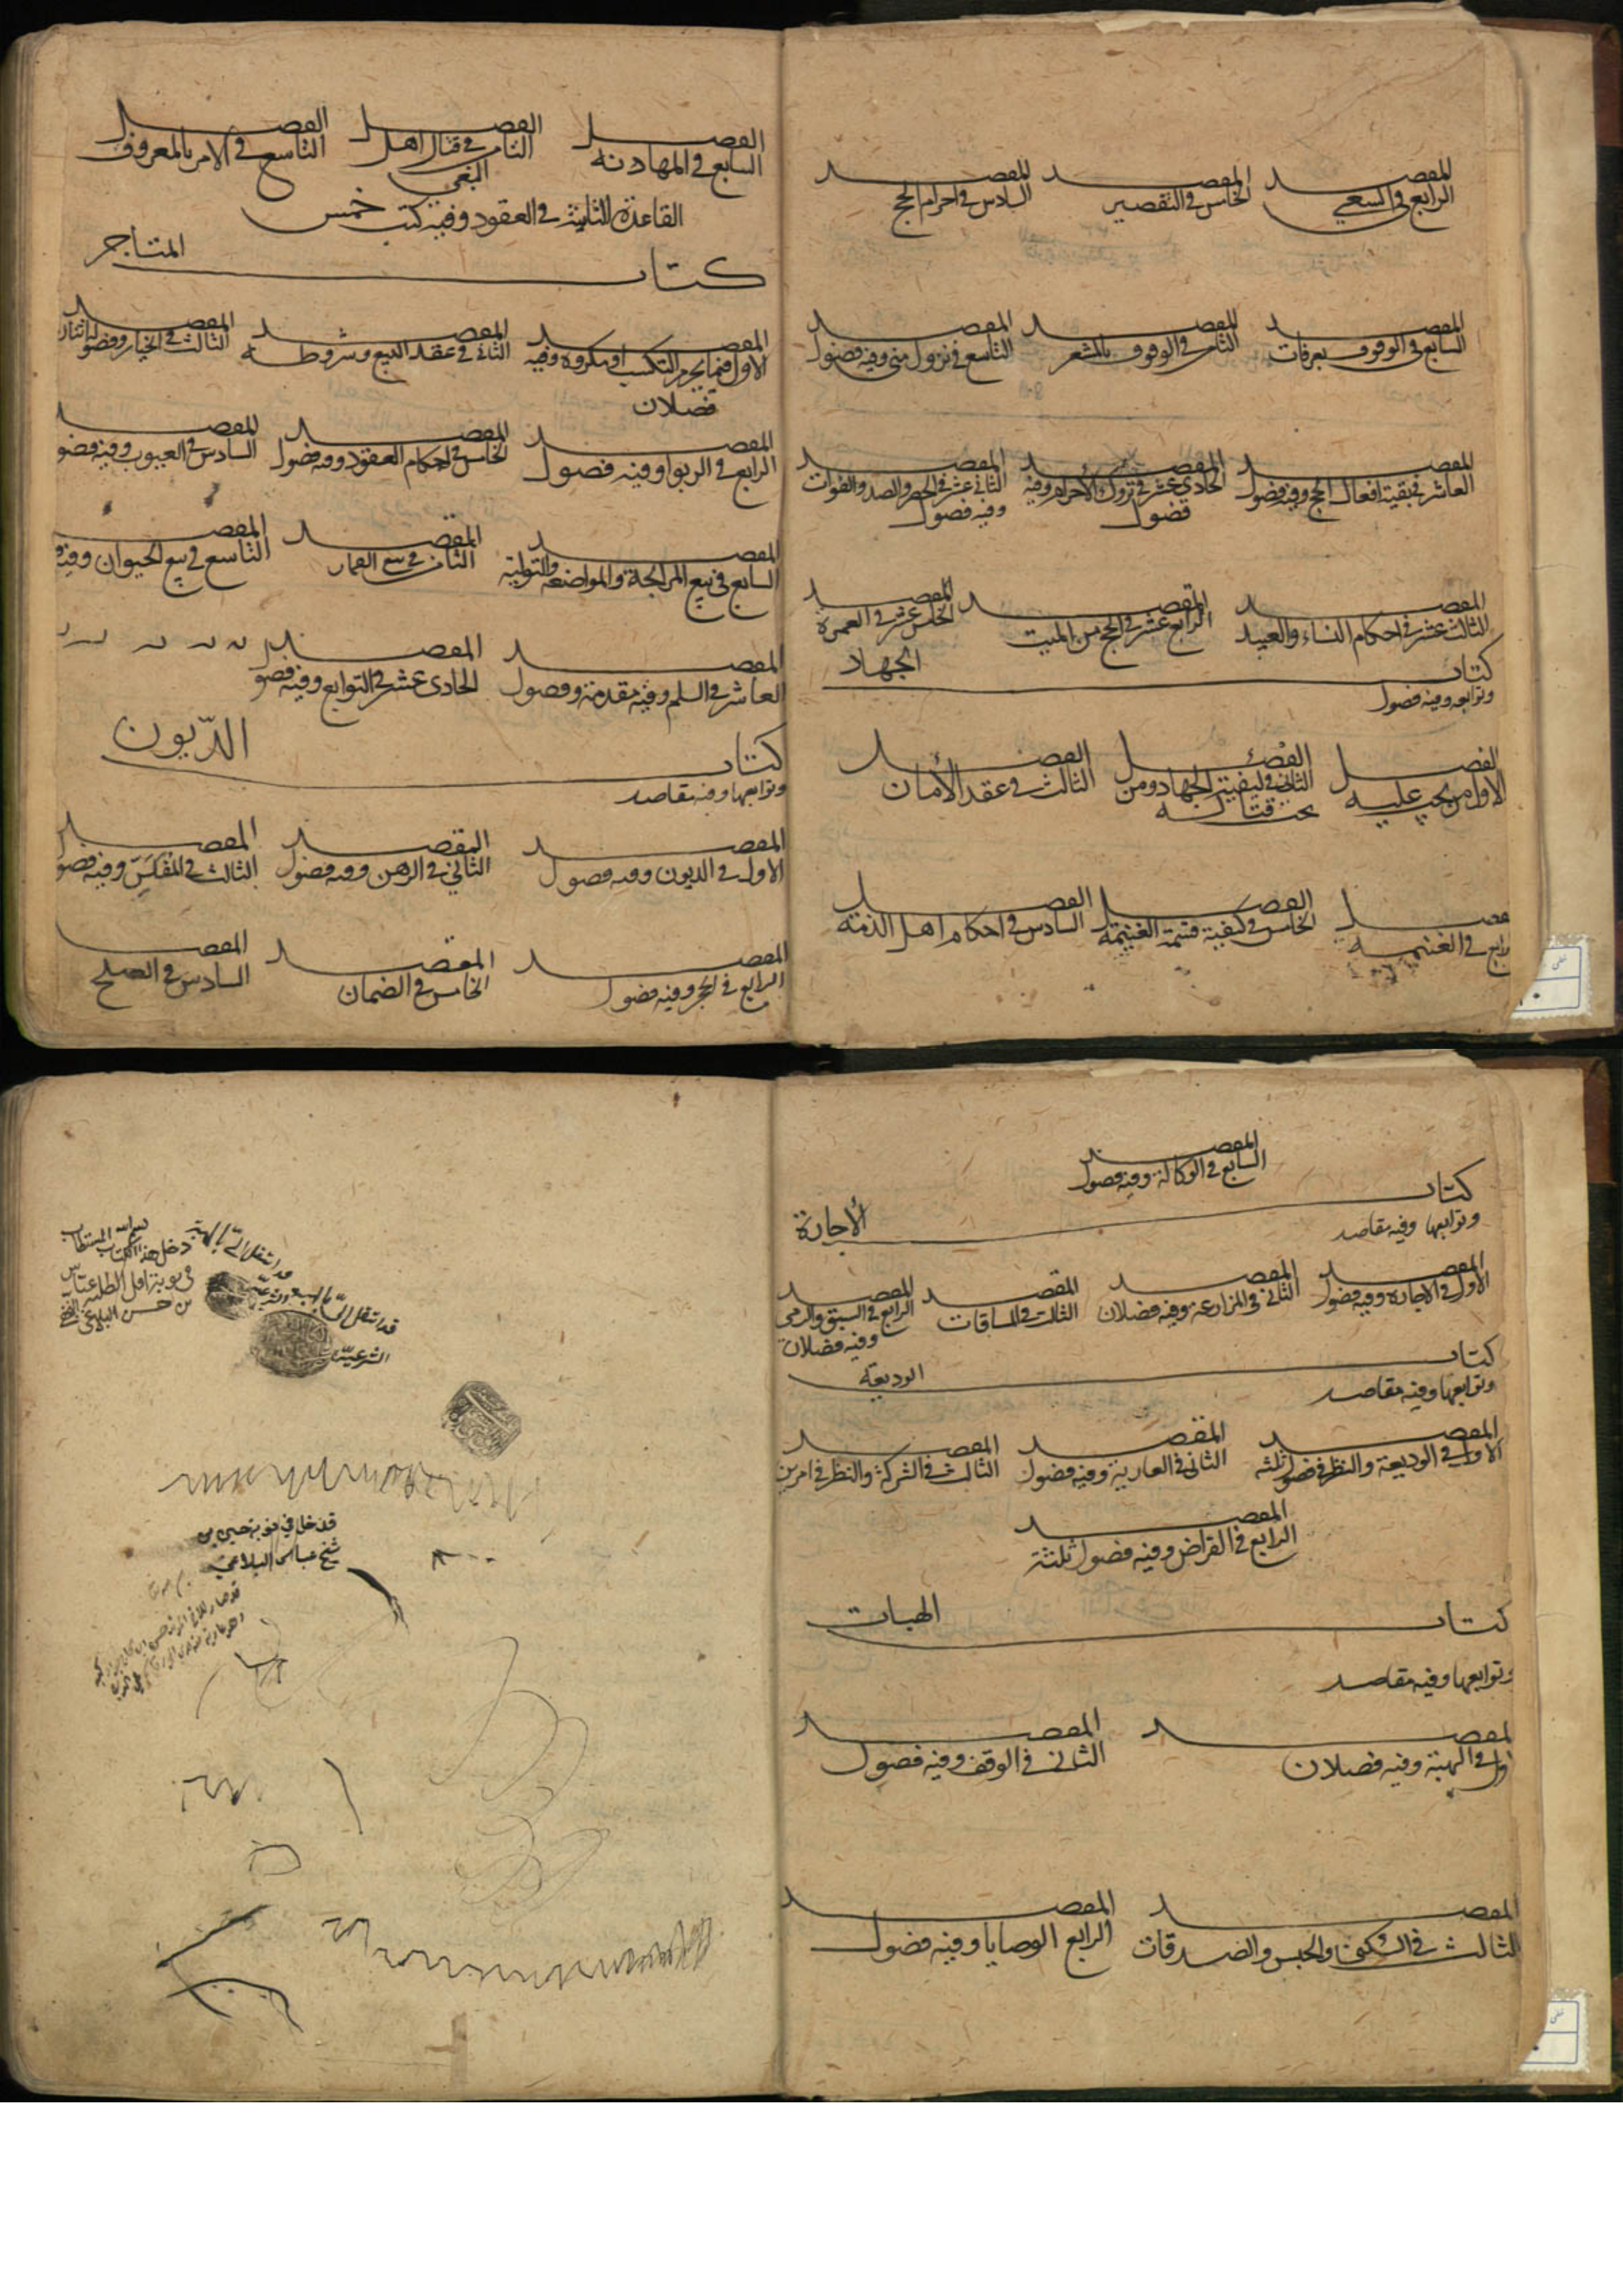 المقصد الرابع في السعي
المقصد الخامس في التقصير
المقصد السادس في احرام الحج
المقصد السابع في الوقوف بعرفات
المقصد الثامن في الوقوف بالمشعر
المقصد التاسع في نزول منى وفيه فصول
المقصد العاشر في بقية افعال الحج وفيه فصول
المقصد الحادي عشر في تروك الاحرام وفيه فصول
المقصد الثاني عشر في الحصر والصد والفوات وفيه فصول
المقصد الثالث عشر في احكام النساء والعبيد
المقصد الرابع عشر في الحج عن الميت
المقصد الخامس عشر في العمرة
كتاب الجهاد
وتوابعه وفيه فصول
الفصل الاول من يجب عليه
الفصل الثاني في كيفية الجهاد ومن يجب قتاله
الفصل الثالث في عقد الأمان
الفصل الرابع في الغنيمة
الفصل الخامس في كيفية قسمة الغنيمة
الفصل السادس في احكام اهل الذمة
الفصل السابع في المهادنه
الفصل الثامن في قتال اهل البغي
الفصل التاسع في الامر بالمعروف
القاعدة الثانية في العقود وفيه كتب خمس
كتاب المتاجر
المقصد الاول فيما يحرم التكسب او مكروه وفيه فصلان
المقصد الثاني في عقد البيع وشروطه
المقصد الثالث في الخيار وفصوله اثنان
المقصد الرابع في الربوا وفيه فصول
المقصد الخامس في احكام العقود وفيه فصول
المقصد السادس في العيوب وفيه فصو
المقصد السابع في بيع المرابحة والمواضعة والتولية
المقصد الثامن في بيع الثمار
المقصد التاسع في بيع الحيوان وفيه
المقصد العاشر في السلم وفيه مقدمة وفصول
المقصد الحادي عشر في التوابع وفيه فصو
كتاب الدّيون
وتوابعها وفيه مقاصد
المقصد الاول في الديون وفيه فصول
المقصد الثاني في الرهن وفيه فصول
المقصد الثالث في المُفَلَّس وفيه فصو
المقصد الرابع في الحجر وفيه فصول
المقصد الخامس في الضمان
المقصد السادس في الصلح
المقصد السابع في الوكالة وفيه فصول
كتاب الأجارة
وتوابعها وفيه مقاصد
المقصد الاول في الاجارة وفيه فصول
المقصد الثاني في المزارعة وفيه فصلان
المقصد الثالث في المساقات
المقصد الرابع في السبق والرمي وفيه فصلان
كتاب الوديعة
وتوابعها وفيه مقاصد
المقصد الاول في الوديعة والنظر في فصول ثلثه
المقصد الثاني في العارية وفيه فصول
المقصد الثالث في الشركة والنظر في امرين
المقصد الرابع في القراض وفيه فصول ثلثة
كتاب الهبات
وتوابعها وفيه مقاصد
المقصد الاول في الهبة وفيه فصلان
المقصد الثاني في الوقف وفيه فصول
المقصد الثالث في السكنى والحبس والصدقات
المقصد الرابع الوصايا وفيه فصول
دخل هذا الكتاب المستطاب
بن حسن البلاغي
قد انتقل
الشرعية
قد دخل في نوبة حسن بن
شيخ عباس البلاغي